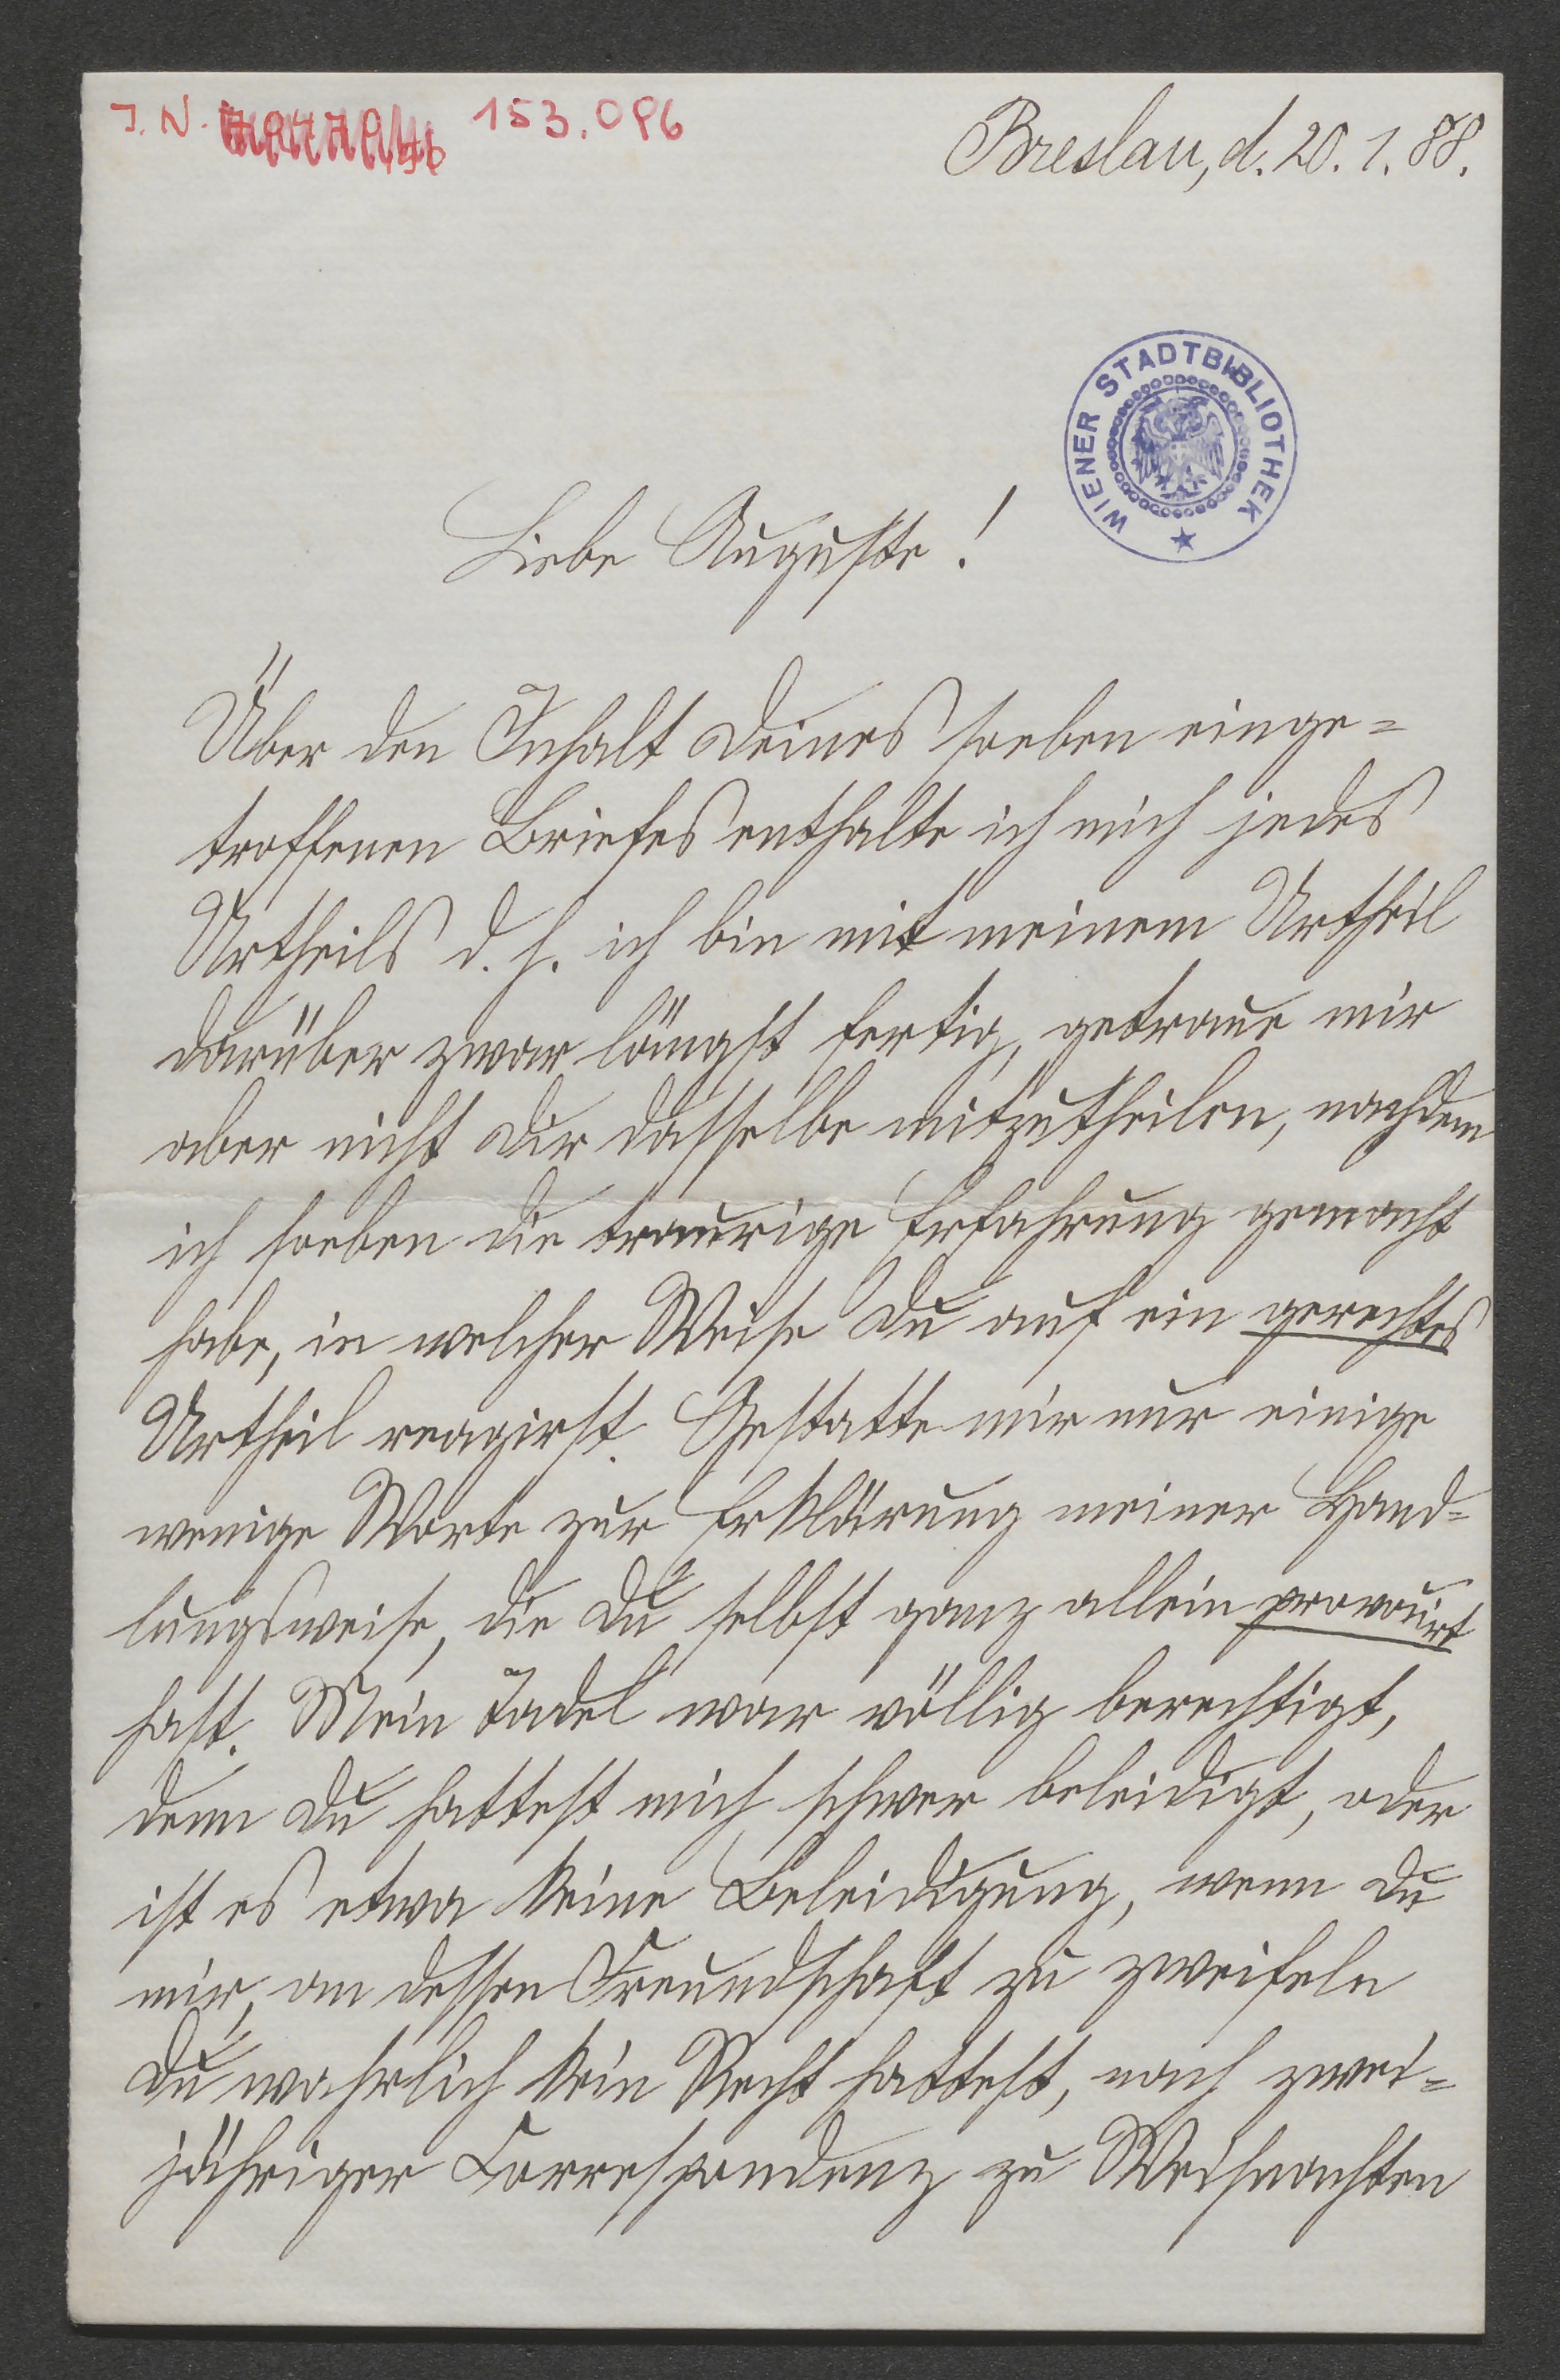 J. N. 153.096
Breslau, d. 20. 1. 88.
WIENER STADTBIBLIOTHEK
Liebe Auguste!
Über den Inhalt Deines soeben einge=
troffenen Briefes enthalte ich mich jedes
Urtheils d. h. ich bin mit meinem Urtheil
darüber zwar längst fertig, getraue mir
aber nicht Dir dasselbe mitzutheilen, nachdem
ich soeben die traurige Erfahrung gemacht
habe, in welcher Weise Du auf ein gerechtes
Urtheil reagirst. Gestatte mir nur einige
wenige Worte zur Erklärung meiner Hand=
lungsweise, die Du selbst ganz allein provocirt
hast. Mein Tadel war völlig berechtigt,
denn Du hattest mich schwer beleidigt, oder
ist es etwa keine Beleidigung, wenn Du
mir, an dessen Freundschaft zu zweifeln
Du wahrlich kein Recht hattest, nach zwei=
jähriger Correspondenz zu Weihnachten